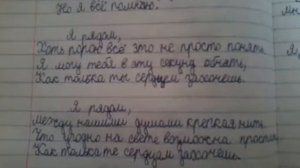 Но я всё помню.
Я рядом,
Хоть порою всё это не просто понять
Я могу тебя в эту секунд обнять,
Как только ты сердцем захочешь.
Я рядом,
Между нашими душами крепкая нить.
Что угодно на свете возможно простить
Как только те сердцем захочешь.